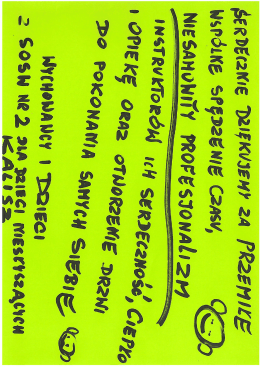 SERDECZNIE DZIĘKUJEMY ZA PRZEMIŁE
WSPÓLNE SPĘDZENIE CZASU,
NIESAMOWITY PROFESJONALIZM
INSTRUKTORÓW ICH SERDECZNOŚĆ, CIEPŁO
I OPIEKĘ ORAZ OTWORZENIE DRZWI
DO POKONANIA SAMYCH SIEBIE
WYCHOWANCY I DZIECI
Z SOSW NR 2 DLA DZIECI NIESŁYSZĄCYCH
KALISZ